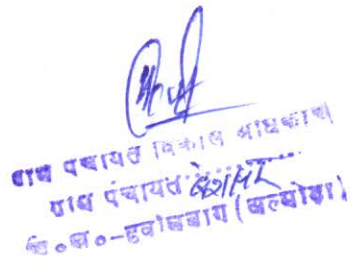 ग्राम पंचायत विकास अधिकारी
ग्राम पंचायत
वि०ख०-हवालबाग (अल्मोड़ा)